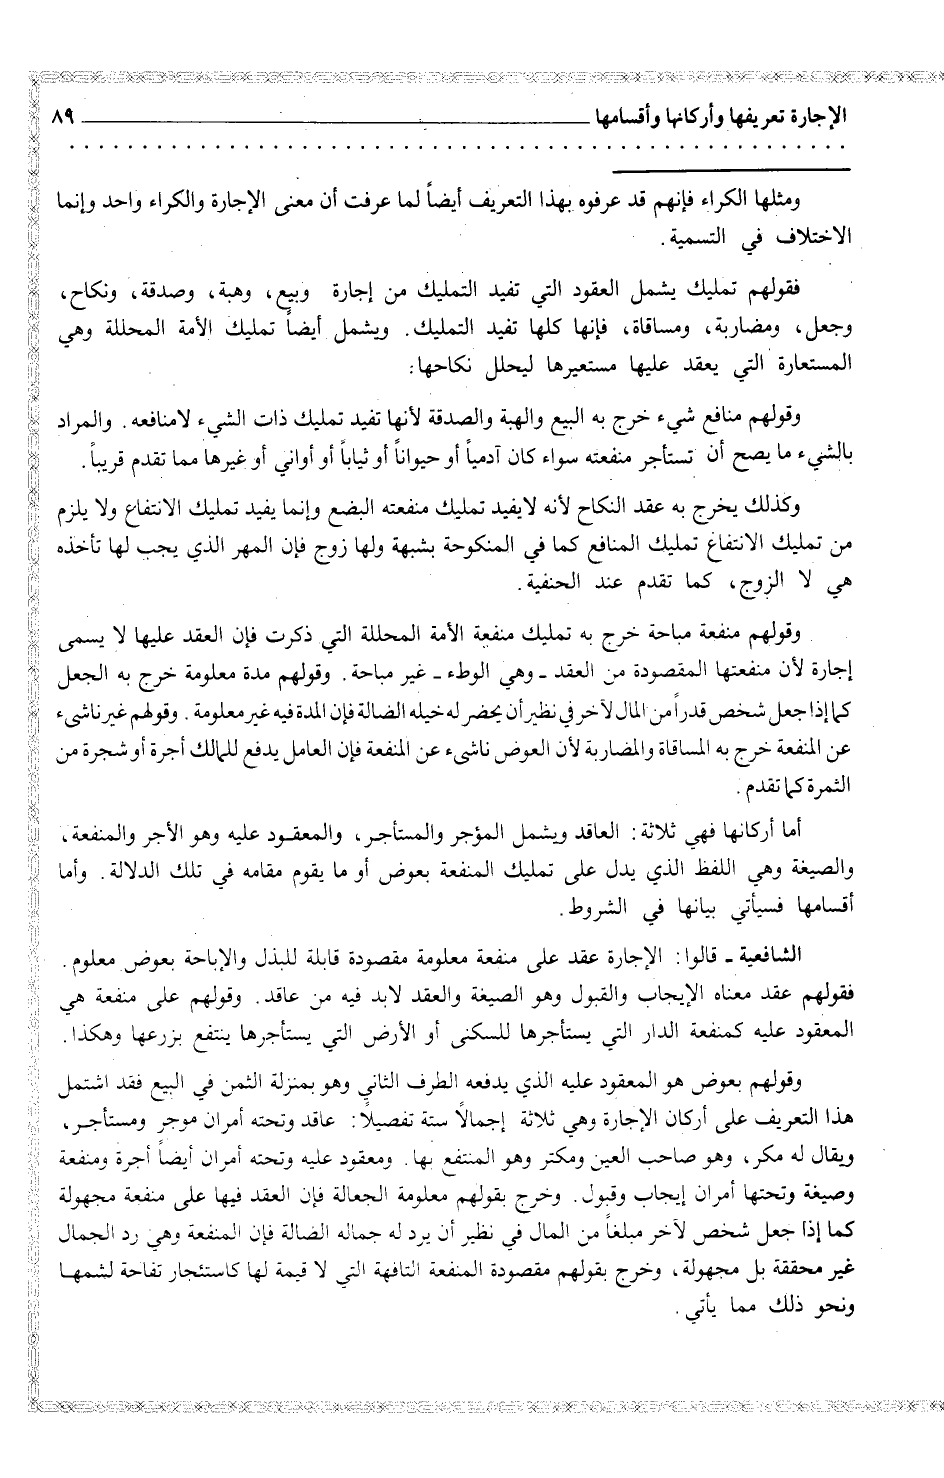 الإجارة تعريفها وأركانها وأقسامها ــــــــــــــــــــ ٨٩
ومثلها الكراء فإنهم قد عرفوه بهذا التعريف أيضاً لما عرفت أن معنى الإجارة والكراء واحد وإنما
الاختلاف في التسمية.
فقولهم تمليك يشمل العقود التي تفيد التمليك من إجارة وبيع، وهبة، وصدقة، ونكاح،
وجعل، ومضاربة، ومساقاة، فإنها كلها تفيد التمليك. ويشمل أيضاً تمليك الأمة المحللة وهي
المستعارة التي يعقد عليها مستعيرها ليحلل نكاحها:
وقولهم منافع شيء خرج به البيع والهبة والصدقة لأنها تفيد تمليك ذات الشيء لامنافعه. والمراد
بالشيء ما يصح أن تستأجر منفعته سواء كان آدمياً أو حيواناً أو ثياباً أو أواني أو غيرها مما تقدم قريباً.
وكذلك يخرج به عقد النكاح لأنه لايفيد تمليك منفعته البضع وإنما يفيد تمليك الانتفاع ولا يلزم
من تمليك الانتفاغ تمليك المنافع كما في المنكوحة بشبهة ولها زوج فإن المهر الذي يجب لها تأخذه
هي لا الزوج، كما تقدم عند الحنفية.
وقولهم منفعة مباحة خرج به تمليك منفعة الأمة المحللة التي ذكرت فإن العقد عليها لا يسمى
إجارة لأن منفعتها المقصودة من العقد ـ وهي الوطء ـ غير مباحة. وقولهم مدة معلومة خرج به الجعل
كما إذا جعل شخص قدراً من المال لآخر في نظير أن يحضر له خيله الضالة فإن المدة فيه غير معلومة. وقولهم غير ناشىء
عن المنفعة خرج به المساقاة والمضاربة لأن العوض ناشىء عن المنفعة فإن العامل يدفع للمالك أجرة أو شجرة من
الثمرة كما تقدم.
أما أركانها فهي ثلاثة: العاقد ويشمل المؤجر والمستأجر، والمعقود عليه وهو الأجر والمنفعة،
والصيغة وهي اللفظ الذي يدل على تمليك المنفعة بعوض أو ما يقوم مقامه في تلك الدلالة. وأما
أقسامها فسيأتي بيانها في الشروط.
الشافعية ـ قالوا: الإجارة عقد على منفعة معلومة مقصودة قابلة للبذل والإباحة بعوض معلوم.
فقولهم عقد معناه الإيجاب والقبول وهو الصيغة والعقد لابد فيه من عاقد. وقولهم على منفعة هي
المعقود عليه كمنفعة الدار التي يستأجرها للسكنى أو الأرض التي يستأجرها ينتفع بزرعها وهكذا.
وقولهم بعوض هو المعقود عليه الذي يدفعه الطرف الثاني وهو بمنزلة الثمن في البيع فقد اشتمل
هذا التعريف على أركان الإجارة وهي ثلاثة إجمالًا ستة تفصيلًا: عاقد وتحته أمران موجر ومستأجر،
ويقال له مكر، وهو صاحب العين ومكتر وهو المنتفع بها. ومعقود عليه وتحته أمران أيضاً أجرة ومنفعة
وصيغة وتحتها أمران إيجاب وقبول. وخرج بقولهم معلومة الجعالة فإن العقد فيها على منفعة مجهولة
كما إذا جعل شخص لآخر مبلغاً من المال في نظير أن يرد له جماله الضالة فإن المنفعة وهي رد الجمال
غير محققة بل مجهولة، وخرج بقولهم مقصودة المنفعة التافهة التي لا قيمة لها كاستئجار تفاحة لشمها
ونحو ذلك مما يأتي.